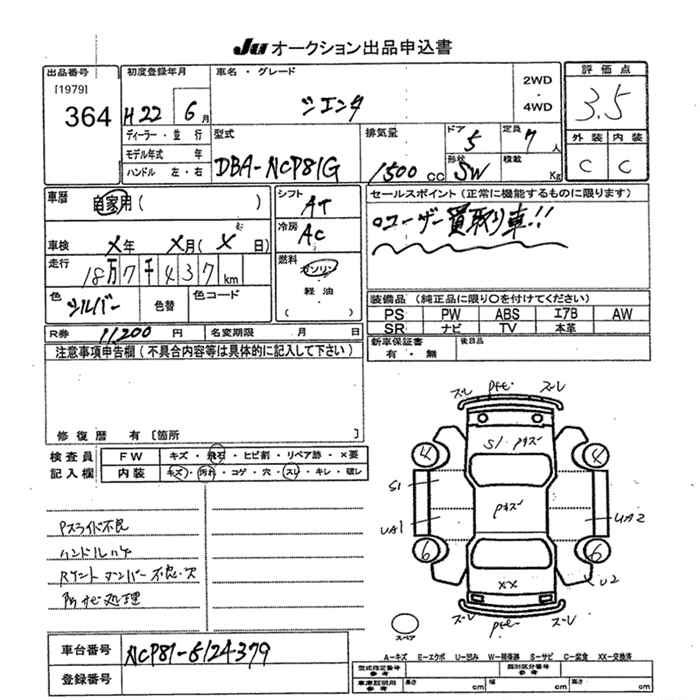 JU オークション出品申込書
出品番号
[1979]
364
初度登録年月
H22年 6月
車名・グレード
シエンタ
2WD
・
4WD
評価点
3.5
外装 内装
C C
ディーラー・並行
モデル年式 年
ハンドル 左・右
型式
DBA-NCP81G
排気量
1500 cc
ドア
5
形状
SW
定員
7人
積載
Kg
車歴
自家用( )
車検 X年 X月(X日)
走行
18万7千437km
色
シルバー
色替
色コード
シフト
AT
冷房
AC
燃料
ガソリン
軽油
( )
セールスポイント(正常に機能するものに限ります)
ユーザー買取り車!!
装備品(純正品に限り○を付けてください)
PS PW ABS エアB AW
SR ナビ TV 本革
R券 11200円 名変期限 月 日
新車保証書
有・無
後日品
注意事項申告欄(不具合内容等は具体的に記入して下さい)
修復歴 有〔箇所 〕
検査員
記入欄
FW キズ・飛石・ヒビ割・リペア跡・×要
内装 キズ・汚れ・コゲ・穴・スレ・キレ・破レ
Pスライド不良
ハンドルハゲ
内サビ処理
ズレ Pキセ ズレ
S1・Pキズ
4 4
S1
Pキズ
UA1 UA2
6 6
XX
U2
ズレ Pキセ ズレ
スペア
A=キズ E=エクボ U=凹み W=補修跡 S=サビ C=腐食 XX=交換済
車台番号 NCP81-5124379
登録番号
型式指定番号
参考
類別区分番号
参考
車庫証明用
参考
長さ cm 幅 cm 高さ cm